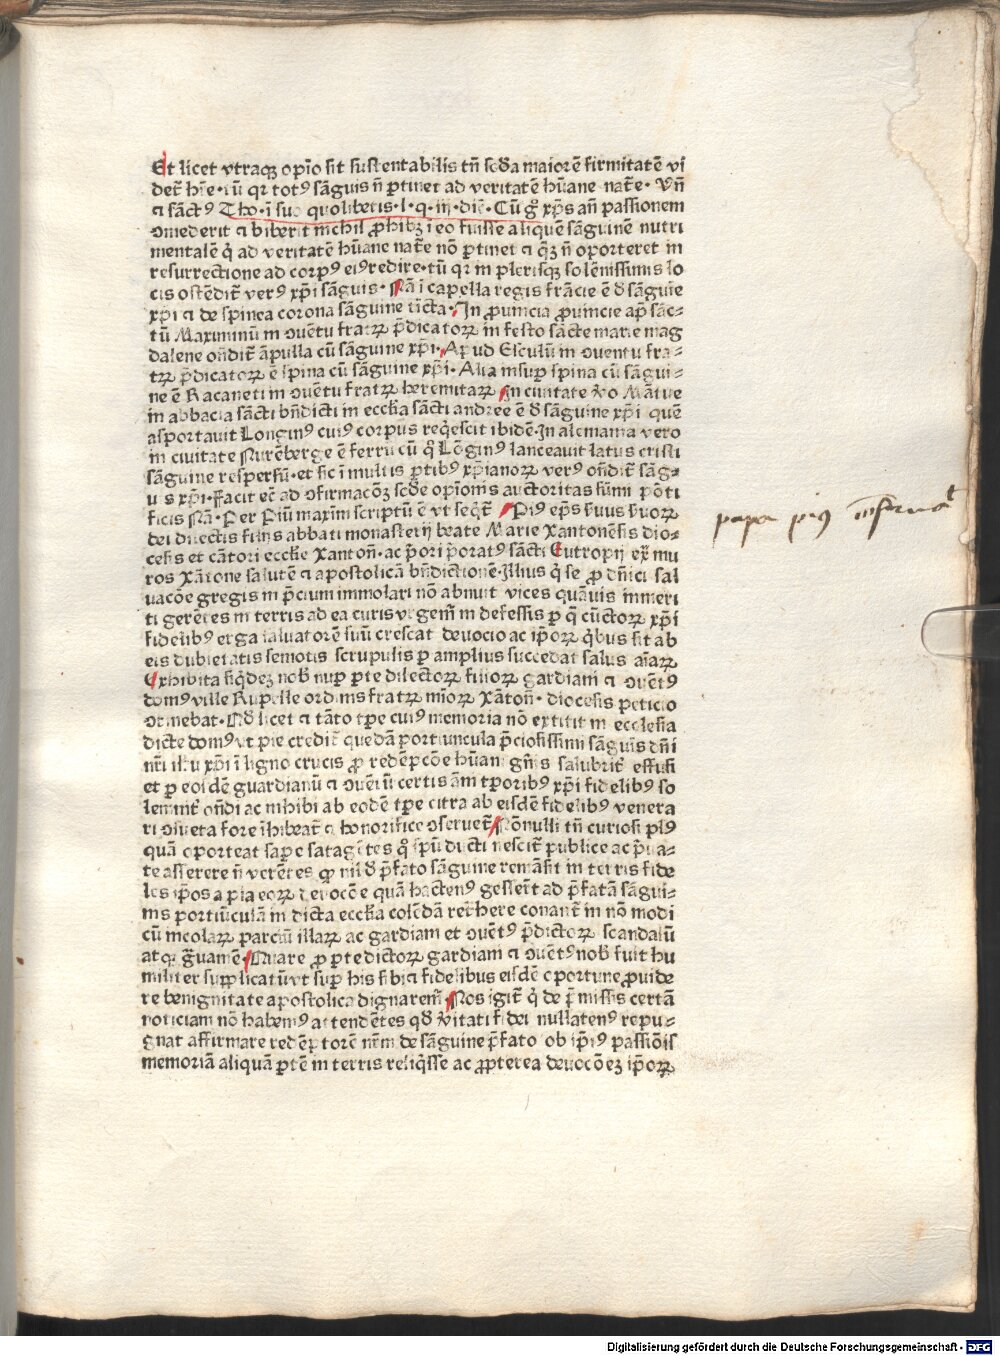 Et licet vtraqꝫ opĩo sit sustentabilis tñ scd̃a maiorẽ firmitatẽ vi
det̃ hr̃e · tũ qr totꝰ sãguis ñ ꝑtinet ad veritatẽ hũane nat̃e · Vñ
⁊ sãctꝰ Tho · ĩ suo quolibetis · l · q · iij · diẽ · Cũ gͦ xp̃s añ passionem
ꝯmederit ⁊ biberit nichil ꝓhibꝫ ĩ eo fuisse aliquẽ sãguinẽ nutri
mentalẽ q̇ ad veritatẽ hũane nat̃e nõ ꝑtinet ⁊ q̃ꝫ ñ oporteret in
resurrectione ad corpꝰ eiꝰ redire · tũ qr in plerisqꝫ solẽnissimis lo
cis ostẽdit̃ verꝰ xp̃i sãguis · Nã ĩ capella regis frãcie ẽ d̃ sãguĩe
xp̃i ⁊ de spinea corona sãguine tĩcta · In ꝓuincia ꝓuincie ap̃ sãc-
tũ Maximinũ in ꝯuẽtu fratrꝝ p̃dicatorꝝ in festo sãcte marie mag
dalene oñdit̃ ãpulla cũ sãguine xp̃i · Apud Esculũ in ꝯuentu fra-
trꝝ p̃dicatorꝝ ẽ spina cũ sãguine xp̃i · Alia insuꝑ spina cũ sãgui-
ne ẽ Racaneti in ꝯuẽtu fratrꝝ heremitarꝝ In ciuitate v̾o Mãtue
in abbacia sãcti bñdicti in eccĩa sãcti andree ẽ d̃ sãguine xp̃i quẽ
asportauit Longinꝰ cuiꝰ corpus req̇escit ibidẽ · In alemania vero
in ciuitate Nurẽberge ẽ ferrũ cũ qͦ Lõginꝰ lanceauit latus cristi
sãguine respersũ · et sic ĩ multis ꝑtibꝰ xp̃ianorꝝ verꝰ oñdit̃ sãg-
uis xp̃i · Facit ec̃ ad ꝯfirmacõꝫ scd̃e opiniois auctoritas sũmi põti
ficis Nã · Per Piũ maxĩm scriptũ ẽ vt seq̃t̃ Piꝰ ep̃s s̃uus s̃uorꝝ
dei dilectis filijs abbati monasterij beate Marie Xantonẽsis dio-
cesis et cãtori ecclie Xantoñ · ac p̃ori p̃oratꝰ sãcti Eutropij ex̃ mu
ros Xãtone salutẽ ⁊ apostolicã bñdictionẽ · Illius q̇ se ꝓ dñici sal
uacõe gregis in p̃cium immolari nõ abnuit vices quãuis immeri
ti gerẽtes in terris ad ea curis vrgem̃ indefessis ꝑ q̃ cũctorꝝ xp̃i
fidelibꝰ erga saluatorẽ suũ crescat deuocio ac ip̃orꝝ q̇bus sit ab
eis dubietatis semotis scrupulis ꝑ amplius succedat salus aĩarꝝ
Exhibita siq̇deꝫ nob̃ nuꝑ ꝑte dilectorꝝ filiorꝝ gardiani ⁊ ꝯuẽtꝰ
domꝰ ville Rupelle ordinis fratrꝝ mĩorꝝ Xãtoñ · diocesis peticio
ꝯtinebat · Qd̃ licet ⁊ tãto tꝑe cuiꝰ memoria nõ extitit in ecclesia
dicte domꝰ vt pie credit̃ quedã portiuncula p̃ciosissimi sãguis dñi
nr̃i ihu xp̃i ĩ ligno crucis ꝓ redẽpcõe hũani gñis salubrit̃ effusi
et ꝑ eosdẽ guardianũ ⁊ ꝯuẽtũ certis ãm tꝑoribꝰ xp̃i fidelibꝰ so
lemnit̃ oñdi ac inhibi ab eodẽ tꝑe citra ab eisdẽ fidelibꝰ venera
ri ꝯsueta fore ĩhibeat̃ ⁊ honorifice ꝯseruet̃ Nõnulli tñ curiosi plꝰ
quã oporteat sape satagẽtes qͦ sp̃ũ ducti nescit̃ publice ac p̃ua-
te asserere ñ verẽtes qꝙ nil d̃ p̃fato sãguine remãsit in terris fide
les ip̃os a pia eorꝝ deuocõe quã hactenꝰ gesseñt ad p̃fatã sãgui-
nis portiũculã in dicta eccĩa colẽdã ret̃here conant̃ in nõ modi
cũ incolarꝝ parciũ illarꝝ ac gardiani et ꝯuẽtꝰ p̃dictorꝝ scandalũ
atqꝫ g̃uamẽ · Quare ꝓ ꝑte dictorꝝ gardiani ⁊ ꝯuẽtꝰ nob̃ fuit hu
militer supplicatũ vt suꝑ his sibi ⁊ fidelibus eisdẽ oportune ꝓuide
re benignitate apostolica dignarem̃ · Nos igit̃ q̇ de p̃missis certã
noticiam nõ habemꝰ attendẽtes qd̃ v̾itati fidei nullatenꝰ repu-
gnat affirmare redẽptorẽ nr̃m de sãguine p̃fato ob ip̃iꝰ passiõis
memoriã aliquã ꝑtẽ in terris reliq̇sse ac ꝓpterea deuocõeꝫ ip̃orꝝ
papa piꝰ
Digitalisierung gefördert durch die Deutsche Forschungsgemeinschaft - DFG